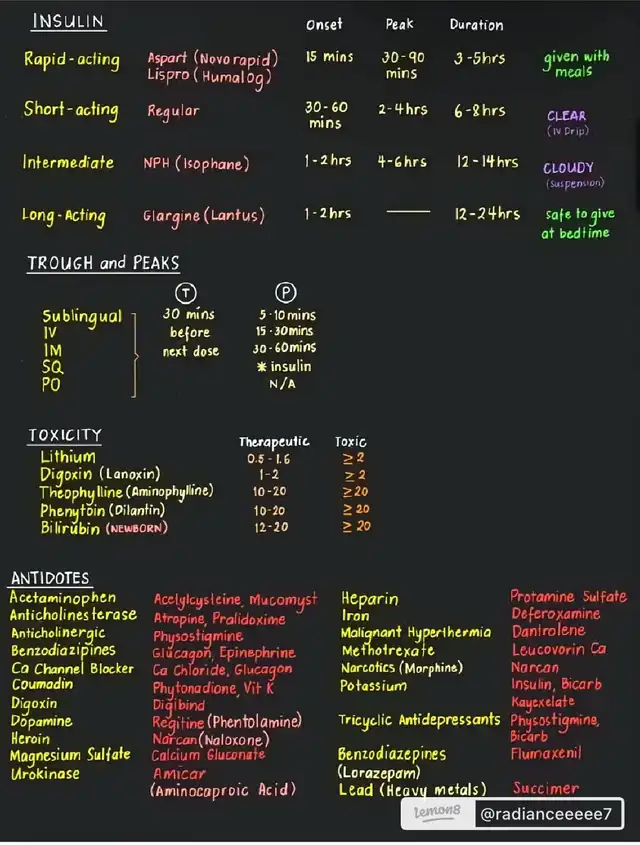 INSULIN Onset Peak Duration
Rapid-acting Aspart (Novorapid) 15 mins 30-90 3-5hrs given with
Lispro (Humalog) mins meals
Short-acting Regular 30-60 2-4hrs 6-8hrs CLEAR
mins (IV Drip)
Intermediate NPH (Isophane) 1-2hrs 4-6hrs 12-14hrs CLOUDY
(Suspension)
Long-Acting Glargine (Lantus) 1-2hrs — 12-24hrs safe to give
at bedtime
TROUGH and PEAKS
T P
Sublingual 30 mins 5-10mins
IV before 15-30mins
IM next dose 30-60mins
SQ * insulin
PO N/A
TOXICITY Therapeutic Toxic
Lithium 0.5-1.6 ≥2
Digoxin (Lanoxin) 1-2 ≥2
Theophylline (Aminophylline) 10-20 ≥20
Phenytoin (Dilantin) 10-20 ≥20
Bilirubin (NEWBORN) 12-20 ≥20
ANTIDOTES
Acetaminophen Acetylcysteine, Mucomyst
Anticholinesterase Atropine, Pralidoxime
Anticholinergic Physostigmine
Benzodiazipines Glucagon, Epinephrine
Ca Channel Blocker Ca Chloride, Glucagon
Coumadin Phytonadione, Vit K
Digoxin Digibind
Dopamine Regitine (Phentolamine)
Heroin Narcan (Naloxone)
Magnesium Sulfate Calcium Gluconate
Urokinase Amicar
(Aminocaproic Acid)
Heparin Protamine Sulfate
Iron Deferoxamine
Malignant Hyperthermia Dantrolene
Methotrexate Leucovorin Ca
Narcotics (Morphine) Narcan
Potassium Insulin, Bicarb
Kayexelate
Tricyclic Antidepressants Physostigmine,
Bicarb
Benzodiazepines Flumaxenil
(Lorazepam)
Lead (Heavy metals) Succimer
lemon8 @radianceeeee7